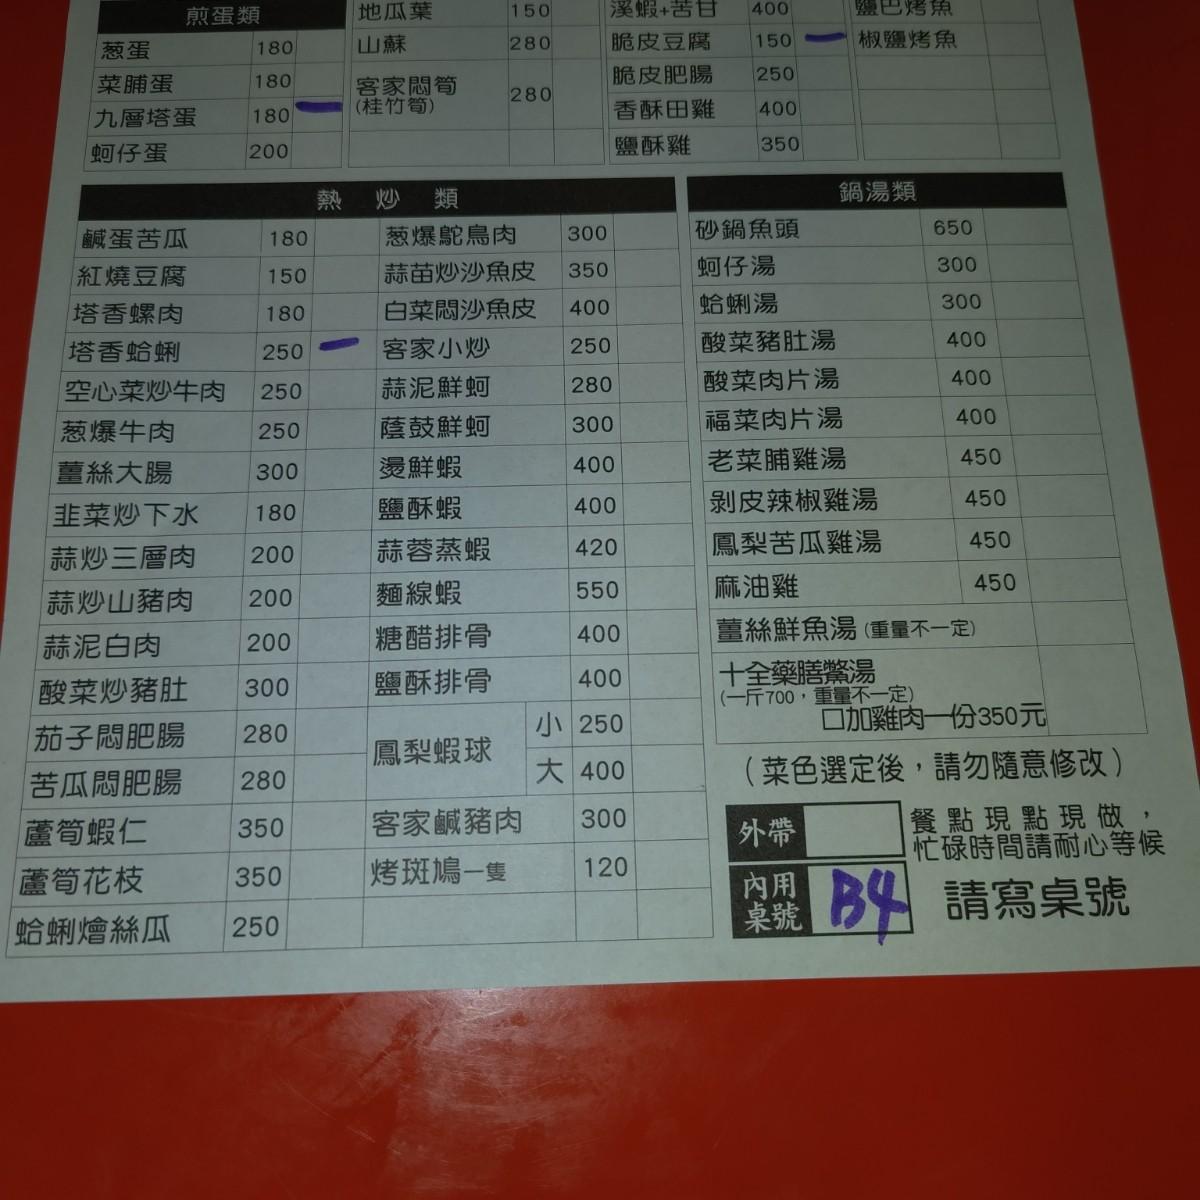 煎蛋類
葱蛋 180
菜脯蛋 180
九層塔蛋 180
蚵仔蛋 200
地瓜葉 150
山蘇 280
客家悶筍 280
(桂竹筍)
溪蝦+苦甘 400
脆皮豆腐 150
脆皮肥腸 250
香酥田雞 400
鹽酥雞 350
鹽巴烤魚
椒鹽烤魚
熱炒類
鹹蛋苦瓜 180
紅燒豆腐 150
塔香螺肉 180
塔香蛤蜊 250
空心菜炒牛肉 250
葱爆牛肉 250
薑絲大腸 300
韭菜炒下水 180
蒜炒三層肉 200
蒜炒山豬肉 200
蒜泥白肉 200
酸菜炒豬肚 300
茄子悶肥腸 280
苦瓜悶肥腸 280
蘆筍蝦仁 350
蘆筍花枝 350
蛤蜊燴絲瓜 250
葱爆鴕鳥肉 300
蒜苗炒沙魚皮 350
白菜悶沙魚皮 400
客家小炒 250
蒜泥鮮蚵 280
蔭鼓鮮蚵 300
燙鮮蝦 400
鹽酥蝦 400
蒜蓉蒸蝦 420
麵線蝦 550
糖醋排骨 400
鹽酥排骨 400
鳳梨蝦球 小 250
大 400
客家鹹豬肉 300
烤斑鳩一隻 120
鍋湯類
砂鍋魚頭 650
蚵仔湯 300
蛤蜊湯 300
酸菜豬肚湯 400
酸菜肉片湯 400
福菜肉片湯 400
老菜脯雞湯 450
剝皮辣椒雞湯 450
鳳梨苦瓜雞湯 450
麻油雞 450
薑絲鮮魚湯 (重量不一定)
十全藥膳鱉湯
(一斤700,重量不一定)
口加雞肉一份350元
(菜色選定後,請勿隨意修改)
外帶
餐點現點現做,
忙碌時間請耐心等候
內用
桌號 B4
請寫桌號